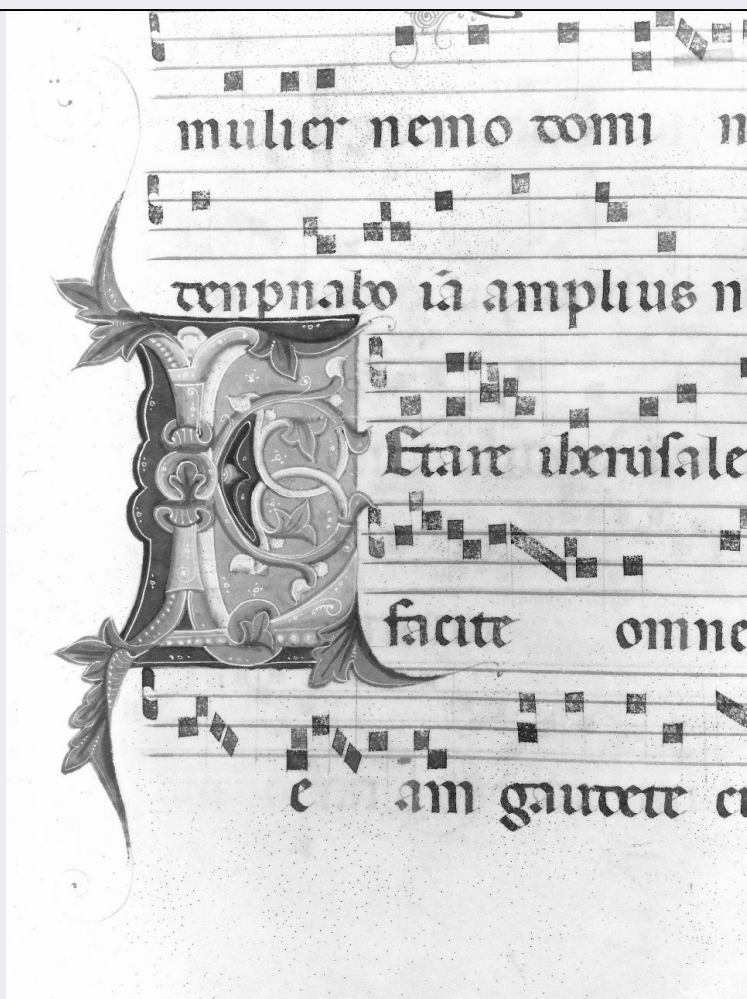 mulier nemo domi n
denpnabo iā amplius n
LEtare iherusale
facite omne
e am gaudete cu